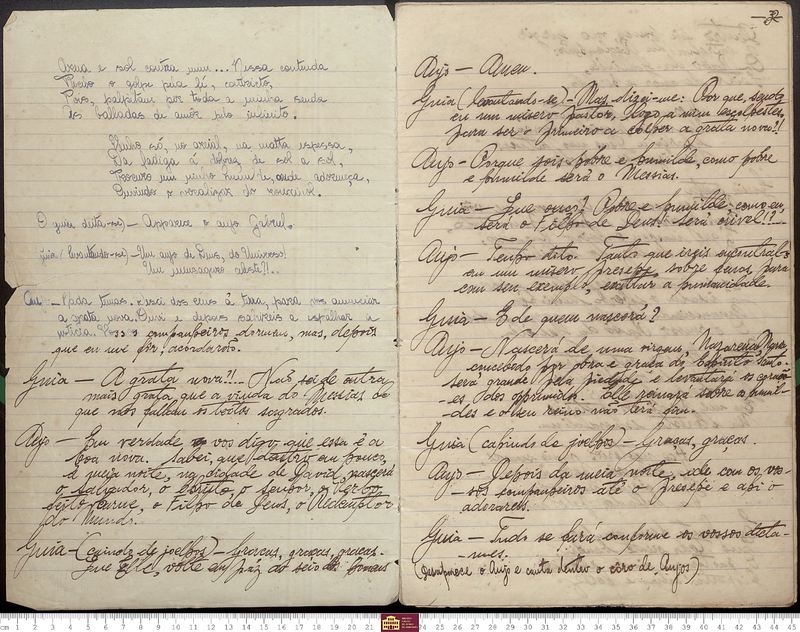 Arma e sol contra mim... Nessa contenda
Recebo o golpe pria lá, contricto,
Pois, palpitam por toda a minha senda
as balladas de amor pelo infinito.
Minho só, no areial, na matta espessa,
Da fadiga á dobrez de sol a sol,
Procuro um ninho humilde, onde adormeça,
Ouvindo o vocalizar do rouxinol.
O guia deita-se) — Apparece o anjo Gabriel.
Guia (levantando-se) — Um anjo de Deus, do Universo!
Um mensageiro celeste?!..
— Nada temas. Desci dos ceus á terra, para vos annunciar
a grata nova. Ouvi e depois sahireis a espalhar a
noticia. companheiros dormem, mas, depois
que eu me fôr, acordarão.
Guia — A grata nova?!.. Não sei de outra
mais grata que a vinda do Messias de
que nos fallam os livros sagrados.
Anjo — Em verdade vos digo que essa é a
boa nova. Sabei, que dentro em pouco,
á meia noite, na cidade de David, nascerá
o Salvador, o Christo, o Senhor, o Verbo
feito carne, o Filho de Deus, o Redemptor
do Mundo.
Guia — (cahindo de joelhos) — Graças, graças, graças.
Que Elle, volte em paz do seio
32
Anjo — Amen.
Guia (levantando-se) — Mas dizei-me: Por que, sendo
eu um misero pastor, logo a mim escolhestes
para ser o primeiro a colher a grata nova?!
Anjo — Porque sois pobre e humilde, como pobre
e humilde será o Messias.
Guia — Que ouço? Pobre e humilde, como eu,
será o Filho de Deus! Será crivel!?...
Anjo — Tenho dito. Tanto que ireis encontral-o
em um misero presepe, sobre para
com seu exemplo, exaltar a humanidade.
Guia — E de quem nascerá?
Anjo — Nascerá de uma virgem, Nazarena
concebido por obra e graça do Espirito Santo.
Será grande pela piedade e levantará os coraçõ-
es dos opprimidos. Elle reinará sobre a humil-
des e o seu reino não terá fim.
Guia (cahindo de joelhos) — Graças, graças.
Anjo — Depois da meia noite, ide com os vos-
sos companheiros até o Presepe e ahi o
adorareis.
Guia — Tudo se fará conforme os vossos dicta-
mes.
(Desapparece o Anjo e canta dentro o côro de Anjos)